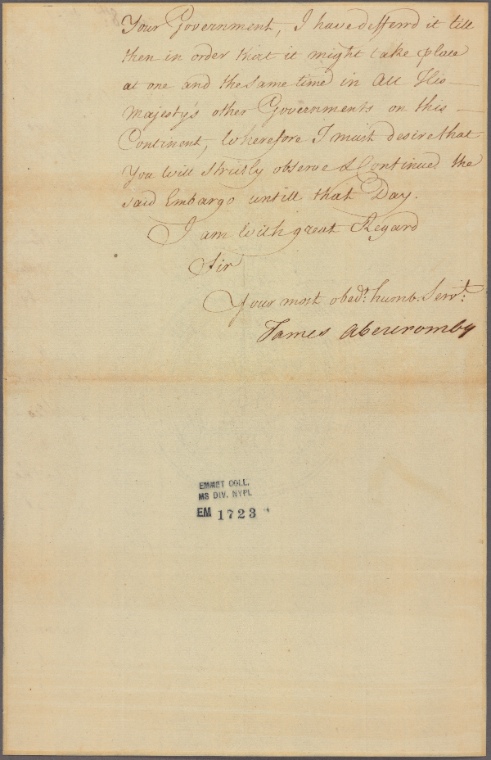 Your Government, I have defferd it till
then in order that it might take place
at one and the same time in all His
Majesty's other Governments on this
Continent, Wherefore I must desire that
You will strictly observe & Continued the
said Embargo untill that Day.
I am With great Regard
Sir
Your most obedt. humb. Servt.
James Abercromby
EMMET COLL.
MS DIV. NYPL
EM 1723